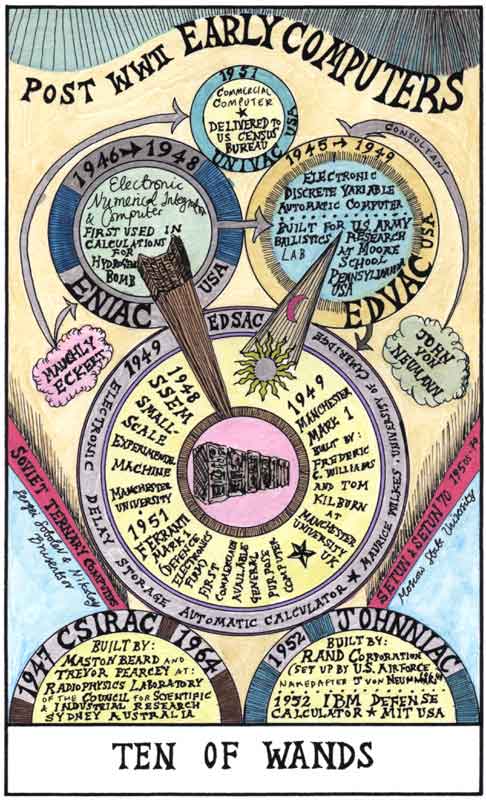 POST WWII EARLY COMPUTERS
1951
COMMERCIAL
COMPUTER
★
DELIVERED TO
US CENSUS
BUREAU
UNIVAC USA
1946→1948
Electronic
Numerical Integrator
& Computer
FIRST USED IN
CALCULATIONS
FOR
HYDROGEN
BOMB
ENIAC USA
1945→1949
ELECTRONIC
DISCRETE VARIABLE
AUTOMATIC COMPUTER
BUILT FOR U.S. ARMY
BALLISTICS RESEARCH
LAB AT MOORE
SCHOOL
PENNSYLVANIA
USA
EDVAC USA
CONSULTANT
MAUCHLY
ECKERT
JOHN
VON
NEUMANN
EDSAC
1949 ELECTRONIC DELAY STORAGE AUTOMATIC CALCULATOR ★ MAURICE WILKES · UNIVERSITY OF CAMBRIDGE
1948
SSEM
SMALL-
SCALE
EXPERIMENTAL
MACHINE
MANCHESTER
UNIVERSITY
1951
FERRANTI
MARK 1
(DEFENCE
ELECTRONICS
FIRM)
FIRST
COMMERCIALLY
AVAILABLE
GENERAL
PURPOSE
COMPUTER
1949
MANCHESTER
MARK 1
BUILT BY:
FREDERIC
C. WILLIAMS
AND TOM
KILBURN
AT
MANCHESTER
UNIVERSITY
UK
SOVIET TERNARY COMPUTERS
Sergei Sobolev & Nikolay
SETUN & SETUN 70 1950s-70
Moscow State University
1947 CSIRAC 1964
BUILT BY:
MASTON BEARD AND
TREVOR PEARCEY AT:
RADIOPHYSICS LABORATORY
OF THE COUNCIL FOR SCIENTIFIC
& INDUSTRIAL RESEARCH
SYDNEY AUSTRALIA
1952 JOHNNIAC
BUILT BY:
RAND CORPORATION
(SET UP BY U.S. AIRFORCE
NAMED AFTER J VON NEUMANN
1952 IBM DEFENSE
CALCULATOR ★ MIT USA
TEN OF WANDS